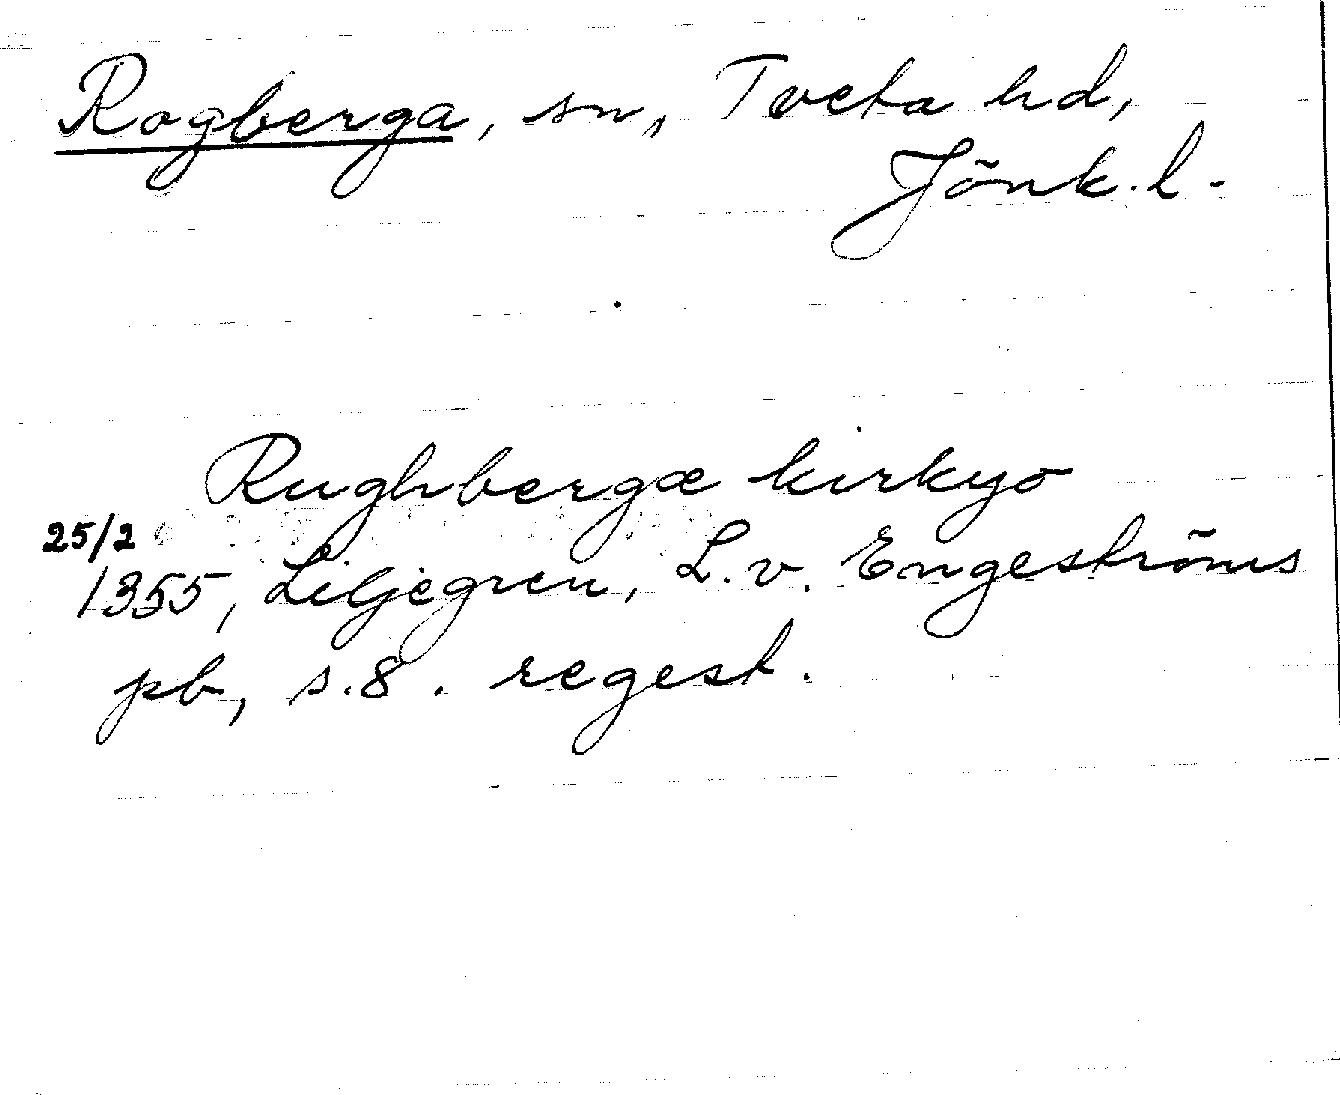 Rogberga, sn, Tveta hd,
Jönk. l.
Rughbergæ kirkyo
25/2
1355, Liljegren, L. v. Engeströms
pb, s. 8. regest.